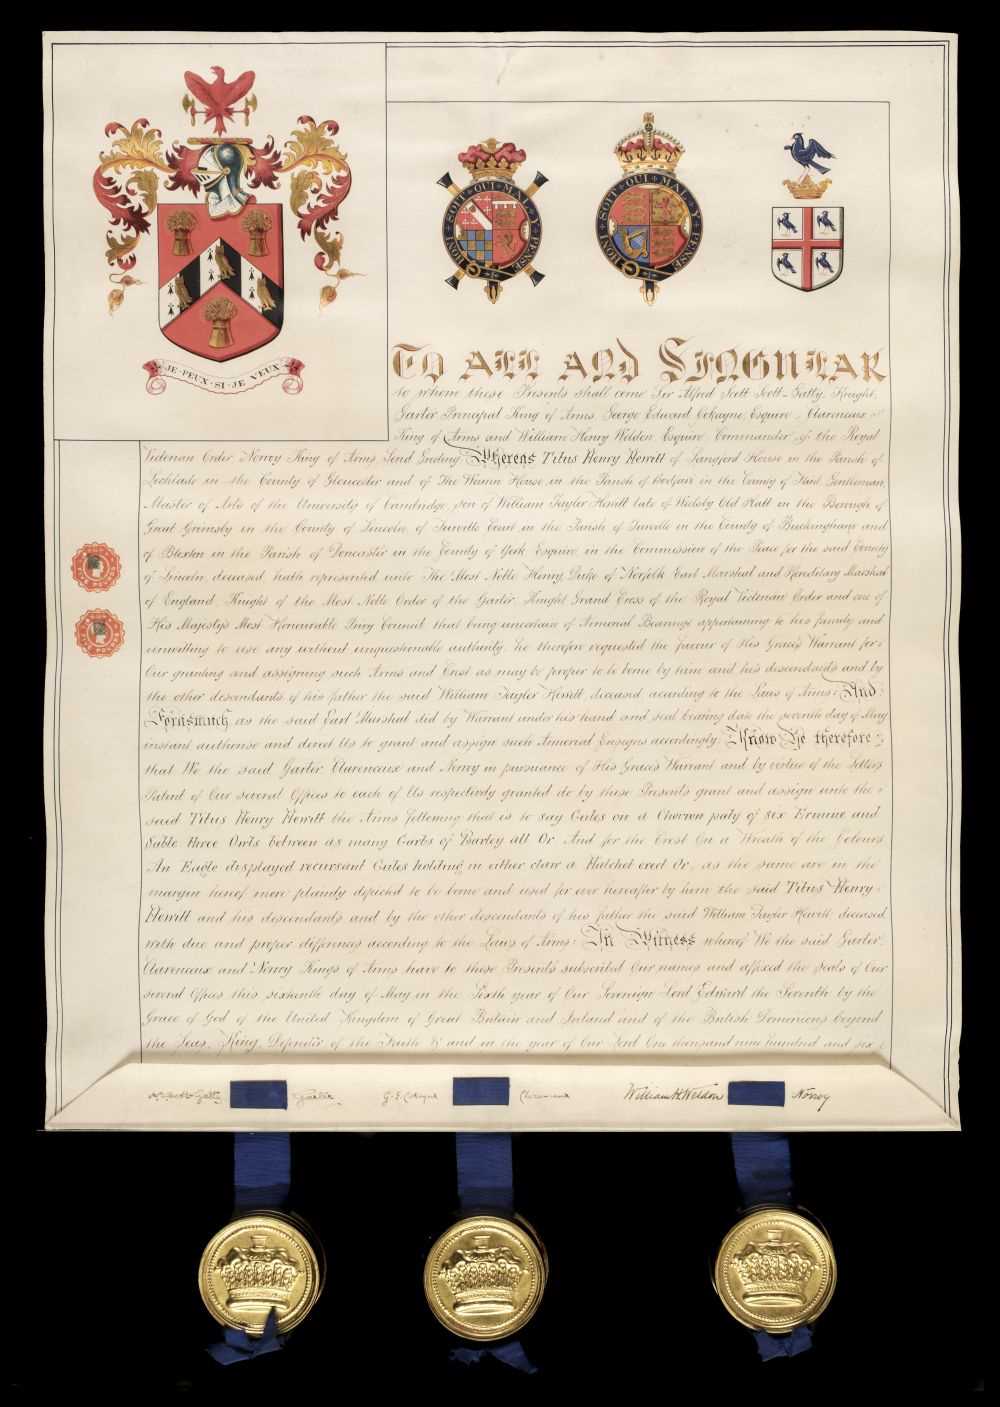 JE·PEUX·SI·JE VEUX
HONI SOIT QUI MAL Y PENSE
HONI SOIT QUI MAL Y PENSE
To All and Singular
to whom these Presents shall come Sir Alfred Scott Scott-Gatty, Knight,
Garter Principal King of Arms, George Edward Cokayne, Esquire, Clarenceux
King of Arms and William Henry Weldon Esquire Commander of the Royal
Victorian Order Norroy King of Arms Send Greeting Whereas Titus Henry Hewitt of Langford House in the Parish of
Lechlade in the County of Gloucester and of The House, in the Parish of in the County of Kent, Gentleman,
Master of Arts of the University of Cambridge, son of William Taylor Hewitt late of Weelsby Old Hall in the Borough of
Great Grimsby in the County of Lincoln, of Turville Court in the Parish of Turville in the County of Buckingham and
of in the Parish of Doncaster in the County of York Esquire, in the Commission of the Peace for the said County
of Lincoln, deceased hath represented unto The Most Noble Henry, Duke of Norfolk Earl Marshal and Hereditary Marshal
of England, Knight of the Most Noble Order of the Garter, Knight Grand Cross of the Royal Victorian Order and one of
His Majesty's Most Honourable Privy Council that being uncertain of Armorial Bearings appertaining to his family and
unwilling to use any without unquestionable authority, he therefore requested the favour of His Grace's Warrant for
Our granting and assigning such Arms and Crest as may be proper to be borne by him and his descendants and by
the other descendants of his father the said William Taylor Hewitt deceased according to the Laws of Arms: And
Forasmuch as the said Earl Marshal did by Warrant under his hand and seal bearing date the seventh day of May
instant authorise and direct Us to grant and assign such Armorial Ensigns accordingly Know Ye therefore
that We the said Garter, Clarenceux and Norroy in pursuance of His Grace's Warrant and by virtue of the Letters
Patent of Our several Offices to each of Us respectively granted do by these Presents grant and assign unto the
said Titus Henry Hewitt the Arms following that is to say Gules on a Chevron party of six Ermine and
Sable three Owls between as many Garbs of Barley all Or And for the Crest On a Wreath of the Colours
An Eagle displayed recursant Gules holding in either claw a Hatchet erect Or, as the same are in the
margin hereof more plainly depicted to be borne and used for ever hereafter by him the said Titus Henry
Hewitt and his descendants and by the other descendants of his father the said William Taylor Hewitt deceased
with due and proper differences according to the Laws of Arms: In Witness whereof We the said Garter,
Clarenceux and Norroy Kings of Arms have to these Presents subscribed Our names and affixed the Seals of Our
several Offices this sixteenth day of May in the Sixth year of Our Sovereign Lord Edward the Seventh by the
Grace of God of the United Kingdom of Great Britain and Ireland and of the British Dominions beyond
the Seas, King, Defender of the Faith &c and in the year of Our Lord One thousand nine hundred and six
A. S. Scott-Gatty Garter G. E. Cokayne Clarenceux William H Weldon Norroy